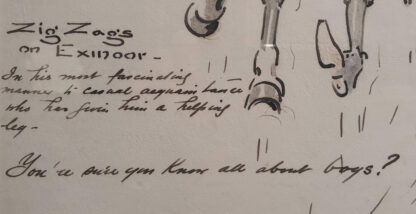 Zig Zags
on Exmoor -
In his most fascinating
manner to casual acquaintance
who has given him a helping
leg -
You're sure you know all about bogs?